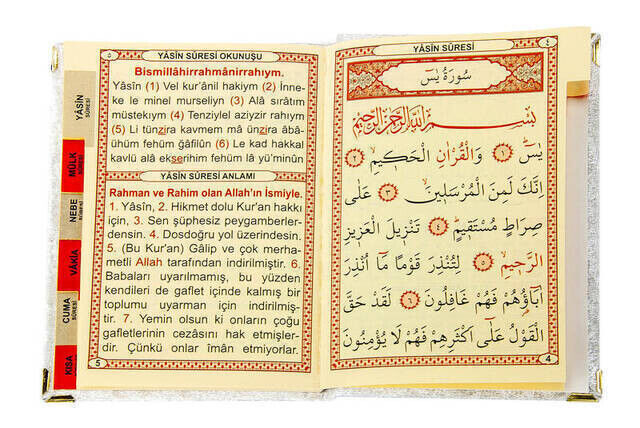 YÂSİN SÛRESİ
MÜLK SÛRESİ
NEBE SÛRESİ
VÂKIA SÛRESİ
CUMA SÛRESİ
KISA
٥
YÂSİN SÛRESİ OKUNUŞU
Bismillâhirrahmânirrahıym.
Yâsîn (1) Vel kur'ânil hakiym (2) İnne-
ke le minel murseliyn (3) Alâ sırâtım
müstekıym (4) Tenziylel aziyzir rahıym
(5) Li tünzira kavmem mâ ünzira âbâ-
ühüm fehüm ğâfilûn (6) Le kad hakkal
kavlü alâ ekserihim fehüm lâ yü'minûn
YÂSİN SÛRESİ ANLAMI
Rahman ve Rahim olan Allah'ın İsmiyle.
1. Yâsîn, 2. Hikmet dolu Kur'an hakkı
için, 3. Sen şüphesiz peygamberler-
densin. 4. Dosdoğru yol üzerindesin.
5. (Bu Kur'an) Gâlip ve çok merha-
metli Allah tarafından indirilmiştir. 6.
Babaları uyarılmamış, bu yüzden
kendileri de gaflet içinde kalmış bir
toplumu uyarman için indirilmiş-
tir. 7. Yemin olsun ki onların çoğu
gafletlerinin cezâsını hak etmişler-
dir. Çünkü onlar îmân etmiyorlar.
5
YÂSİN SÛRESİ
٤
سُورَةُ يٰسٓ
بِسْمِ اللّٰهِ الرَّحْمٰنِ الرَّحِيمِ
يٰسٓ ﴿١﴾ وَالْقُرْاٰنِ الْحَكِيمِ ﴿٢﴾
اِنَّكَ لَمِنَ الْمُرْسَلِينَ ﴿٣﴾ عَلٰى
صِرَاطٍ مُسْتَقِيمٍ ﴿٤﴾ تَنْزِيلَ الْعَزِيزِ
الرَّحِيمِ ﴿٥﴾ لِتُنْذِرَ قَوْمًا مَٓا اُنْذِرَ
اٰبَٓاؤُهُمْ فَهُمْ غَافِلُونَ ﴿٦﴾ لَقَدْ حَقَّ
الْقَوْلُ عَلٰٓى اَكْثَرِهِمْ فَهُمْ لَا يُؤْمِنُونَ
4